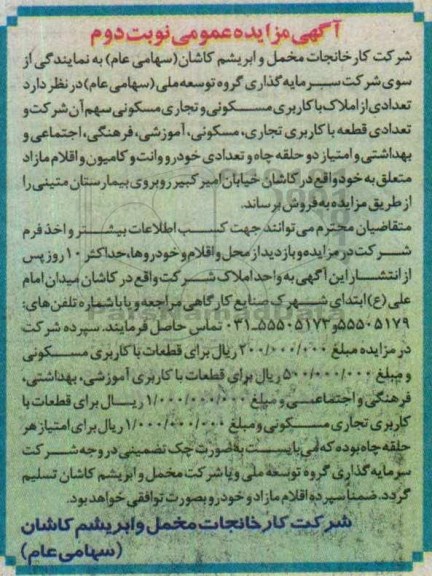 آگهی مزایده عمومی نوبت دوم
شرکت کارخانجات مخمل و ابریشم کاشان (سهامی عام) به نمایندگی از
سوی شرکت سرمایه گذاری گروه توسعه ملی (سهامی عام) در نظر دارد
تعدادی از املاک با کاربری مسکونی و تجاری مسکونی سهم آن شرکت و
تعدادی قطعه با کاربری تجاری، مسکونی، آموزشی، فرهنگی، اجتماعی و
بهداشتی و امتیاز دو حلقه چاه و تعدادی خودرو وانت و کامیون و اقلام مازاد
متعلق به خود واقع در کاشان خیابان امیرکبیر روبروی بیمارستان متینی را
از طریق مزایده به فروش برساند.
متقاضیان محترم می توانند جهت کسب اطلاعات بیشتر و اخذ فرم
شرکت در مزایده و بازدید از محل و اقلام و خودروها، حداکثر ۱۰ روز پس
از انتشار این آگهی به واحد املاک شرکت واقع در کاشان میدان امام
علی (ع) ابتدای شهرک صنایع کارگاهی مراجعه و یا با شماره تلفن های:
۵۵۵۰۵۱۷۹ و ۵۵۵۰۵۱۷۳-۰۳۱ تماس حاصل فرمایند. سپرده شرکت
در مزایده مبلغ ۲۰۰/۰۰۰/۰۰۰ ریال برای قطعات با کاربری مسکونی
و مبلغ ۵۰۰/۰۰۰/۰۰۰ ریال برای قطعات با کاربری آموزشی، بهداشتی،
فرهنگی و اجتماعی و مبلغ ۱/۰۰۰/۰۰۰/۰۰۰ ریال برای قطعات با
کاربری تجاری مسکونی و مبلغ ۱/۰۰۰/۰۰۰/۰۰۰ ریال برای امتیاز هر
حلقه چاه بوده که می بایست به صورت چک تضمینی در وجه شرکت
سرمایه گذاری گروه توسعه ملی و یا شرکت مخمل و ابریشم کاشان تسلیم
گردد. ضمنا سپرده اقلام مازاد و خودرو بصورت توافقی خواهد بود.
شرکت کارخانجات مخمل و ابریشم کاشان
(سهامی عام)